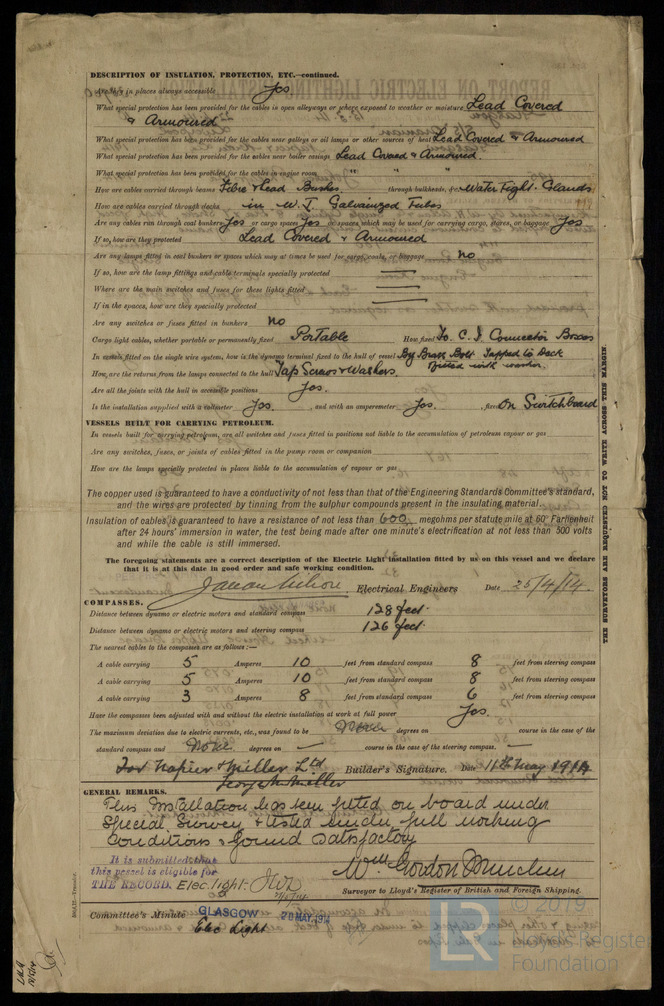 DESCRIPTION OF INSULATION, PROTECTION, ETC.—continued.
Are they in places always accessible Yes
What special protection has been provided for the cables in open alleyways or where exposed to weather or moisture Lead Covered
& Armoured
What special protection has been provided for the cables near galleys or oil lamps or other sources of heat Lead Covered & Armoured
What special protection has been provided for the cables near boiler casings Lead Covered & Armoured.
What special protection has been provided for the cables in engine room " " "
How are cables carried through beams Fibre & Lead Bushes through bulkheads, &c. Water Tight Glands
How are cables carried through decks in W.I. Galvanized Tubes
Are any cables run through coal bunkers Yes or cargo spaces Yes or spaces which may be used for carrying cargo, stores, or baggage Yes
If so, how are they protected Lead Covered & Armoured
Are any lamps fitted in coal bunkers or spaces which may at times be used for cargo, coals, or baggage No
If so, how are the lamp fittings and cable terminals specially protected
Where are the main switches and fuses for these lights fitted
If in the spaces, how are they specially protected
Are any switches or fuses fitted in bunkers No
Cargo light cables, whether portable or permanently fixed Portable How fixed To C.I. Connector Boxes
In vessels fitted on the single wire system, how is the dynamo terminal fixed to the hull of vessel By Brass Bolt Tapped to Deck
fitted with washer.
How are the returns from the lamps connected to the hull Tap Screws & Washers.
Are all the joints with the hull in accessible positions Yes.
Is the installation supplied with a voltmeter Yes. , and with an amperemeter Yes. , fixed On Switchboard
VESSELS BUILT FOR CARRYING PETROLEUM.
In vessels built for carrying petroleum, are all switches and fuses fitted in positions not liable to the accumulation of petroleum vapour or gas
Are any switches, fuses, or joints of cables fitted in the pump room or companion
How are the lamps specially protected in places liable to the accumulation of vapour or gas
The copper used is guaranteed to have a conductivity of not less than that of the Engineering Standards Committee's standard,
and the wires are protected by tinning from the sulphur compounds present in the insulating material.
Insulation of cables is guaranteed to have a resistance of not less than 600 megohms per statute mile at 60° Farhenheit
after 24 hours' immersion in water, the test being made after one minute's electrification at not less than 500 volts
and while the cable is still immersed.
The foregoing statements are a correct description of the Electric Light installation fitted by us on this vessel and we declare
that it is at date in good order and safe working condition.
Electrical Engineers Date 25/4/14.
COMPASSES.
Distance between dynamo or electric motors and standard compass 128 feet.
Distance between dynamo or electric motors and steering compass 126 feet.
The nearest cables to the compasses are as follows:—
A cable carrying 5 Amperes 10 feet from standard compass 8 feet from steering compass
A cable carrying 5 Amperes 10 feet from standard compass 8 feet from steering compass
A cable carrying 3 Amperes 8 feet from standard compass 6 feet from steering compass
Have the compasses been adjusted with and without the electric installation at work at full power Yes.
The maximum deviation due to electric currents, etc., was found to be None degrees on course in the case of the
standard compass and None. degrees on — course in the case of the steering compass. —
For Napier & Miller Ltd
George Miller Builder's Signature. Date 11th May 1914
GENERAL REMARKS.
This Installation has been fitted on board under
Special Survey & tested under full working
Conditions & found Satisfactory
It is submitted that
this vessel is eligible for
THE RECORD. Elec. light.
Wm Gordon
Surveyor to Lloyd's Register of British and Foreign Shipping.
Committee's Minute GLASGOW 26 MAY. 1914
Elec Light
THE SURVEYORS ARE REQUESTED NOT TO WRITE ACROSS THIS MARGIN.
LR
© 2019
Lloyd's Register
Foundation